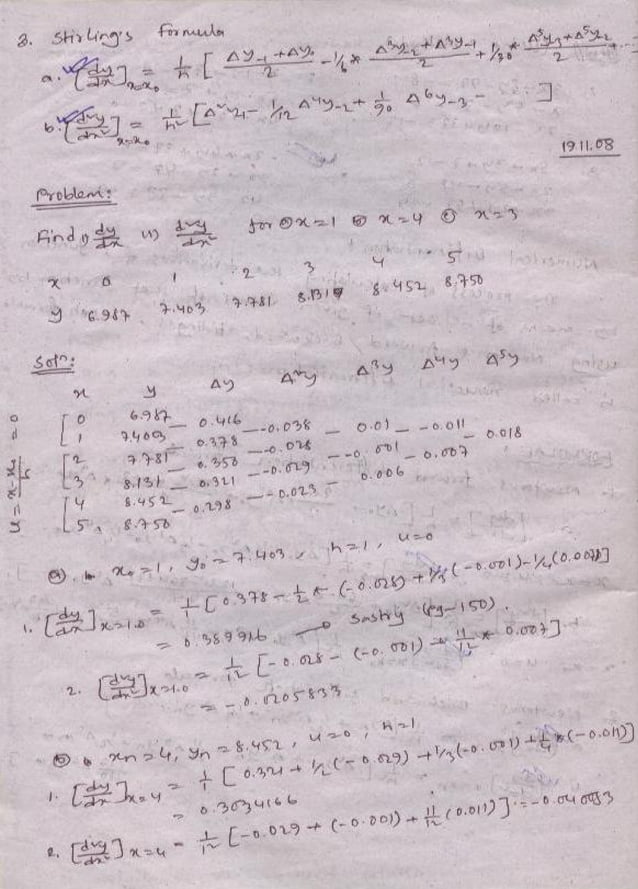 3. Stirling's formula
a. [dy/dx]x=x₀ = 1/h [ Δy₋₁ + Δy₀ / 2 - 1/6 * Δ³y₋₂ + Δ³y₋₁ / 2 + 1/30 * Δ⁵y₋₃ + Δ⁵y₋₂ / 2 ...
b. [d²y/dx²]x=x₀ = 1/h² [Δ²y₋₁ - 1/12 Δ⁴y₋₂ + 1/90 Δ⁶y₋₃ - ]
19.11.08
Problem:
Find i) dy/dx ii) d²y/dx² for ⓐ x=1 ⓑ x=4 ⓒ x=3
x 0 1 2 3 4 5
y 6.987 7.403 7.781 8.131 8.452 8.750
Soln:
x y Δy Δ²y Δ³y Δ⁴y Δ⁵y
0 6.987 0.416 -0.038 0.01 -0.011 0.018
1 7.403 0.378 -0.028 -0.001 0.007
2 7.781 0.350 -0.029 0.006
3 8.131 0.321 -0.023
4 8.452 0.298
5 8.750
u = x-x₀/h = 0
ⓐ. x₀=1, y₀=7.403, h=1, u=0
1. [dy/dx]x=1.0 = 1/1 [0.378 - 1/2 * (-0.028) + 1/3 (-0.001) - 1/4 (0.007)]
= 0.389916 → Sastry (pg-150).
2. [d²y/dx²]x=1.0 = 1/1² [-0.028 - (-0.001) + 11/12 * 0.007]
= -0.0205833
ⓑ xn=4, yn=8.452, u=0, h=1
1. [dy/dx]x=4 = 1/1 [0.321 + 1/2 (-0.029) + 1/3 (-0.001) + 1/4 * (-0.011)]
= 0.3034166
2. [d²y/dx²]x=4 = 1/1² [-0.029 + (-0.001) + 11/12 (0.011)] = -0.040083